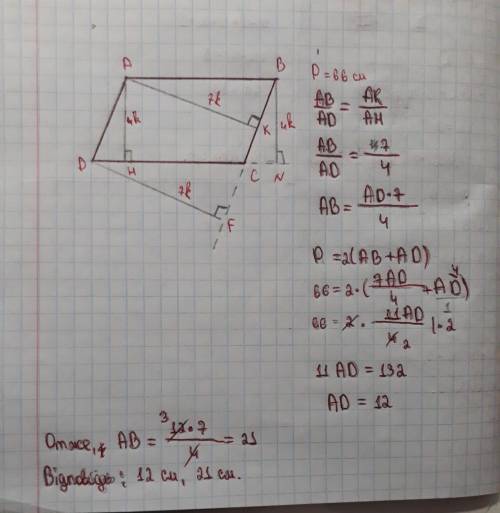 A
B
7k
4k
K
4k
D
H
C
N
7k
F
P = 66 см
AB/AD = AK/AH
AB/AD = 7/4
AB = AD·7/4
P = 2(AB + AD)
66 = 2·(7AD/4 + AD/1)
66 = 2·11AD/4 |·2
11 AD = 132
AD = 12
Отже, AB = 12·7/4 = 21
Відповідь: 12 см, 21 см.